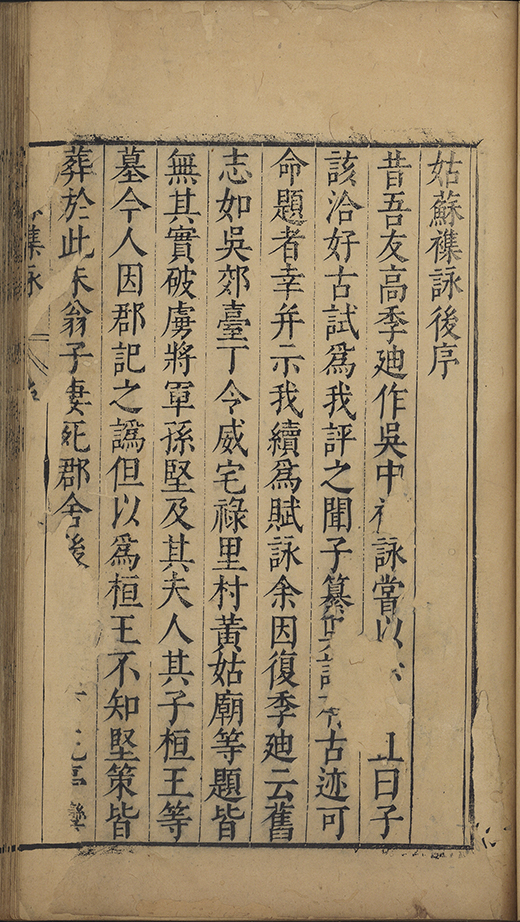 姑蘇襍詠後序
昔吾友高季廸作吳中詠嘗以曰子
該洽好古試為我評之聞子纂古迹可
命題者幸并示我續為賦詠余因復季廸云舊
志如吳郊臺丁令威宅祿里村黃姑廟等題皆
無其實破虜將軍孫堅及其夫人其子桓王等
墓今人因郡記之譌但以為桓王不知堅策皆
葬於此朱翁子妻死郡舍後亭
集詠